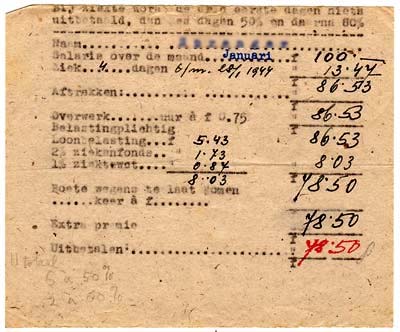 Bij ziekte wordt de drie eerste dagen niets
uitbetaald, dan zes dagen 50% en daarna 80%
Naam
Salaris over de maand Januari f 100.—
Ziek 4 dagen 13.47
Aftrekken: 86.53
Overwerk......uur à f 0.75 86.53
Belastingplichtig 86.53
Loonbelasting..f 5.43
2% ziekenfonds.. " 1.73 8.03
1% ziektewet.... " 0.87 78.50
8.03
Boete wegens te laat komen
......keer à f........
78.50
Extra premie
Uitbetalen: 78.50
5 à 50%